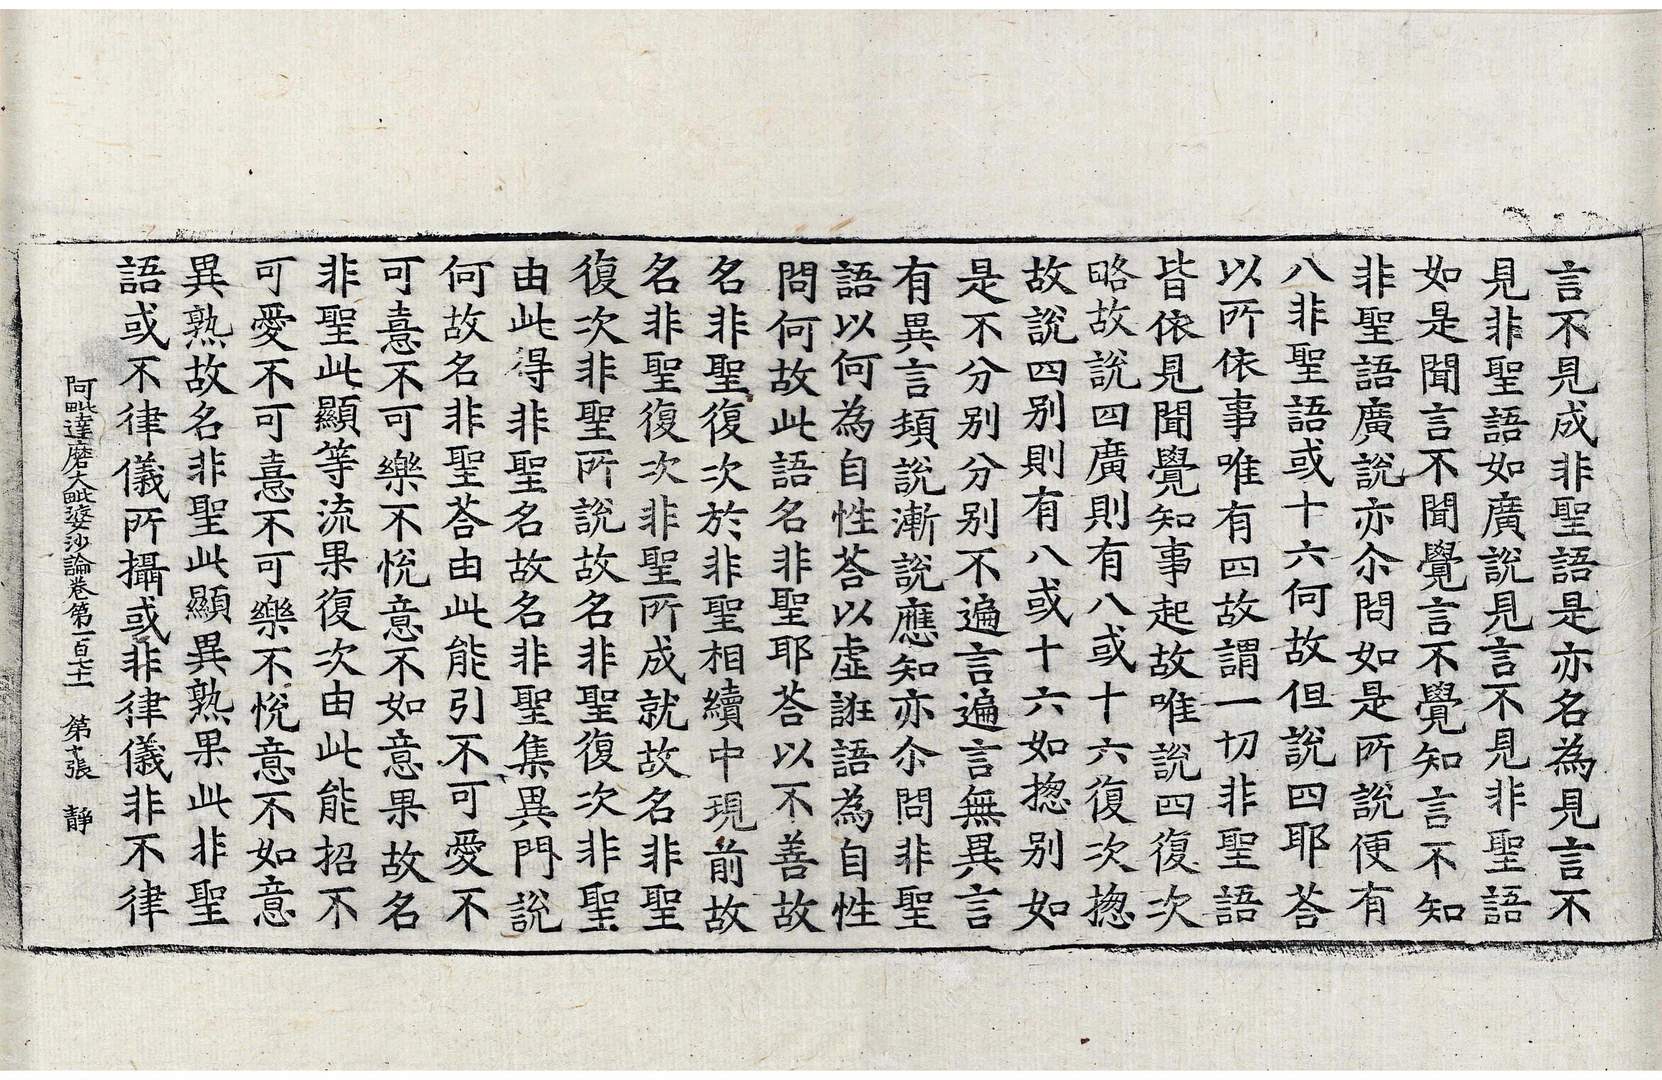 言不見成非聖語是亦名為見言不
見非聖語如廣說見言不見非聖語
如是聞言不聞覺言不覺知言不知
非聖語廣說亦尒問如是所說便有
八非聖語或十六何故但說四耶荅
以所依事唯有四故謂一切非聖語
皆依見聞覺知事起故唯說四復次
略故說四廣則有八或十六復次揔
故說四別則有八或十六如揔別如
是不分別分別不遍言遍言無異言
有異言頓說漸說應知亦尒問非聖
語以何為自性荅以虛誑語為自性
問何故此語名非聖耶荅以不善故
名非聖復次於非聖相續中現前故
名非聖復次非聖所成就故名非聖
復次非聖所說故名非聖復次非聖
由此得非聖名故名非聖集異門說
何故名非聖荅由此能引不可愛不
可憙不可樂不悅意不如意果故名
非聖此顯等流果復次由此能招不
可愛不可憙不可樂不悅意不如意
異熟故名非聖此顯異熟果此非聖
語或不律儀所攝或非律儀非不律
阿毗達磨大毗婆沙論卷第一百七十一　第十張　靜